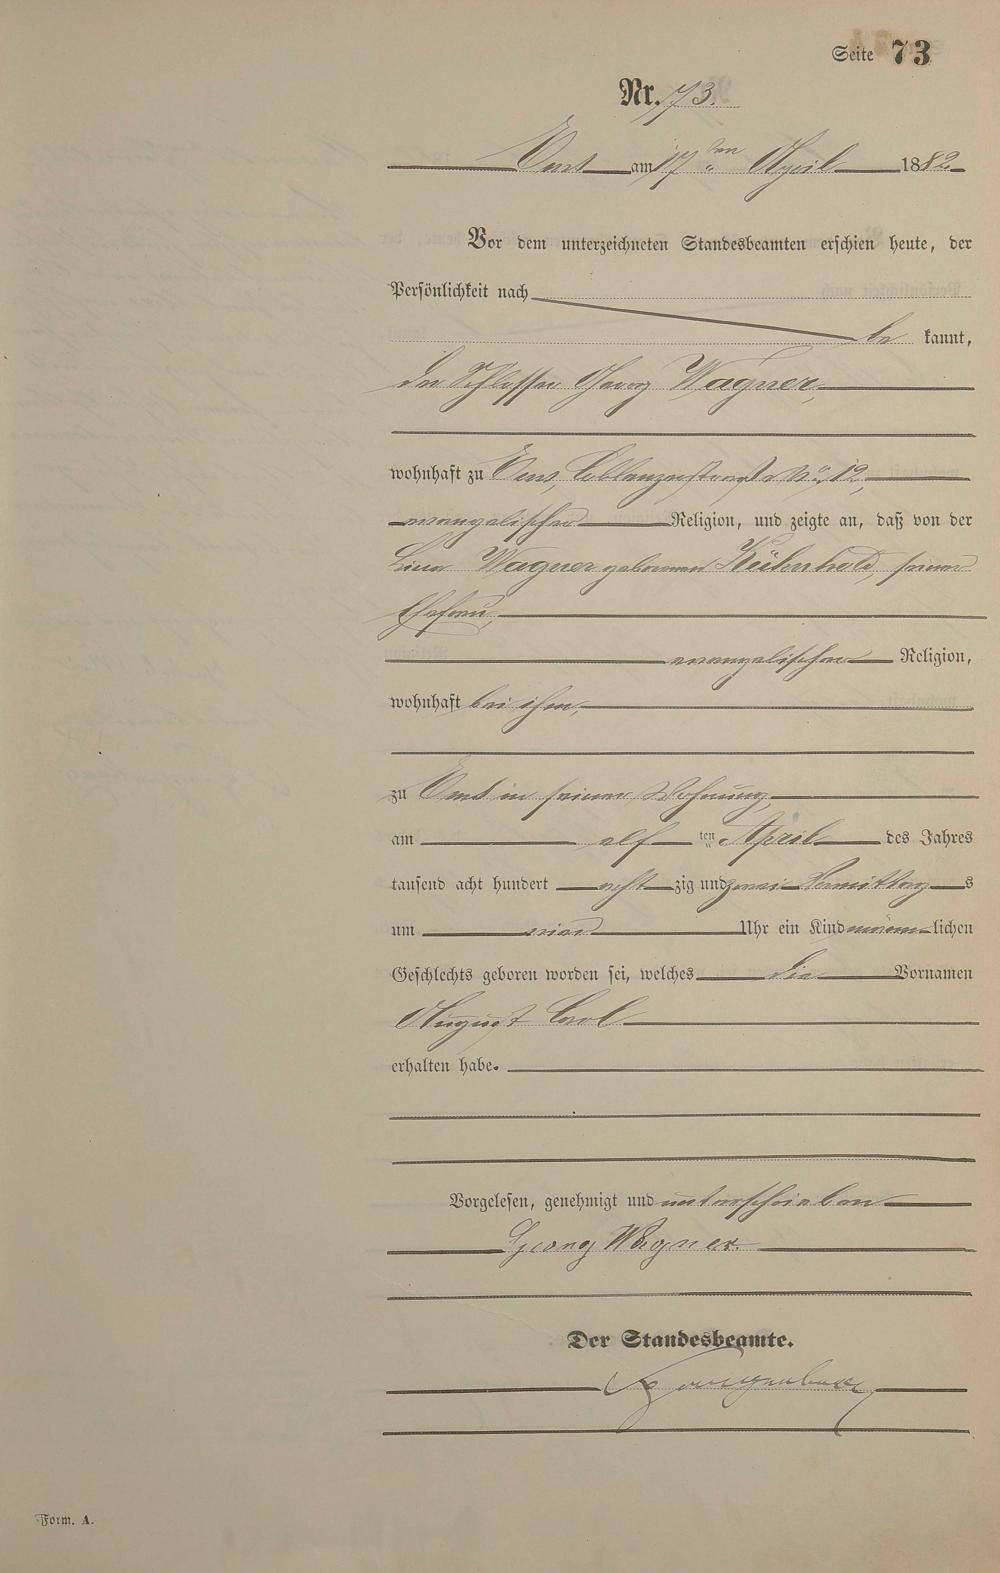 Seite 73
Nr. 73.
Ems am 17ten April 1882
Vor dem unterzeichneten Standesbeamten erschien heute, der
Persönlichkeit nach
be kannt,
der Schlosser Georg Wagner,
wohnhaft zu Ems, Coblenzerstraße No. 12,
evangelischer Religion, und zeigte an, daß von der
Wagner geborenen seiner
Ehefrau,
evangelischer Religion,
wohnhaft bei ihm,
zu Ems in seiner Wohnung,
am elf ten April des Jahres
tausend acht hundert acht zig und zwei Vormittag s
um vier Uhr ein Kind männ lichen
Geschlechts geboren worden sei, welches die Vornamen
August Carl
erhalten habe.
Vorgelesen, genehmigt und unterschrieben
Georg Wagner.
Der Standesbeamte.
Form. A.